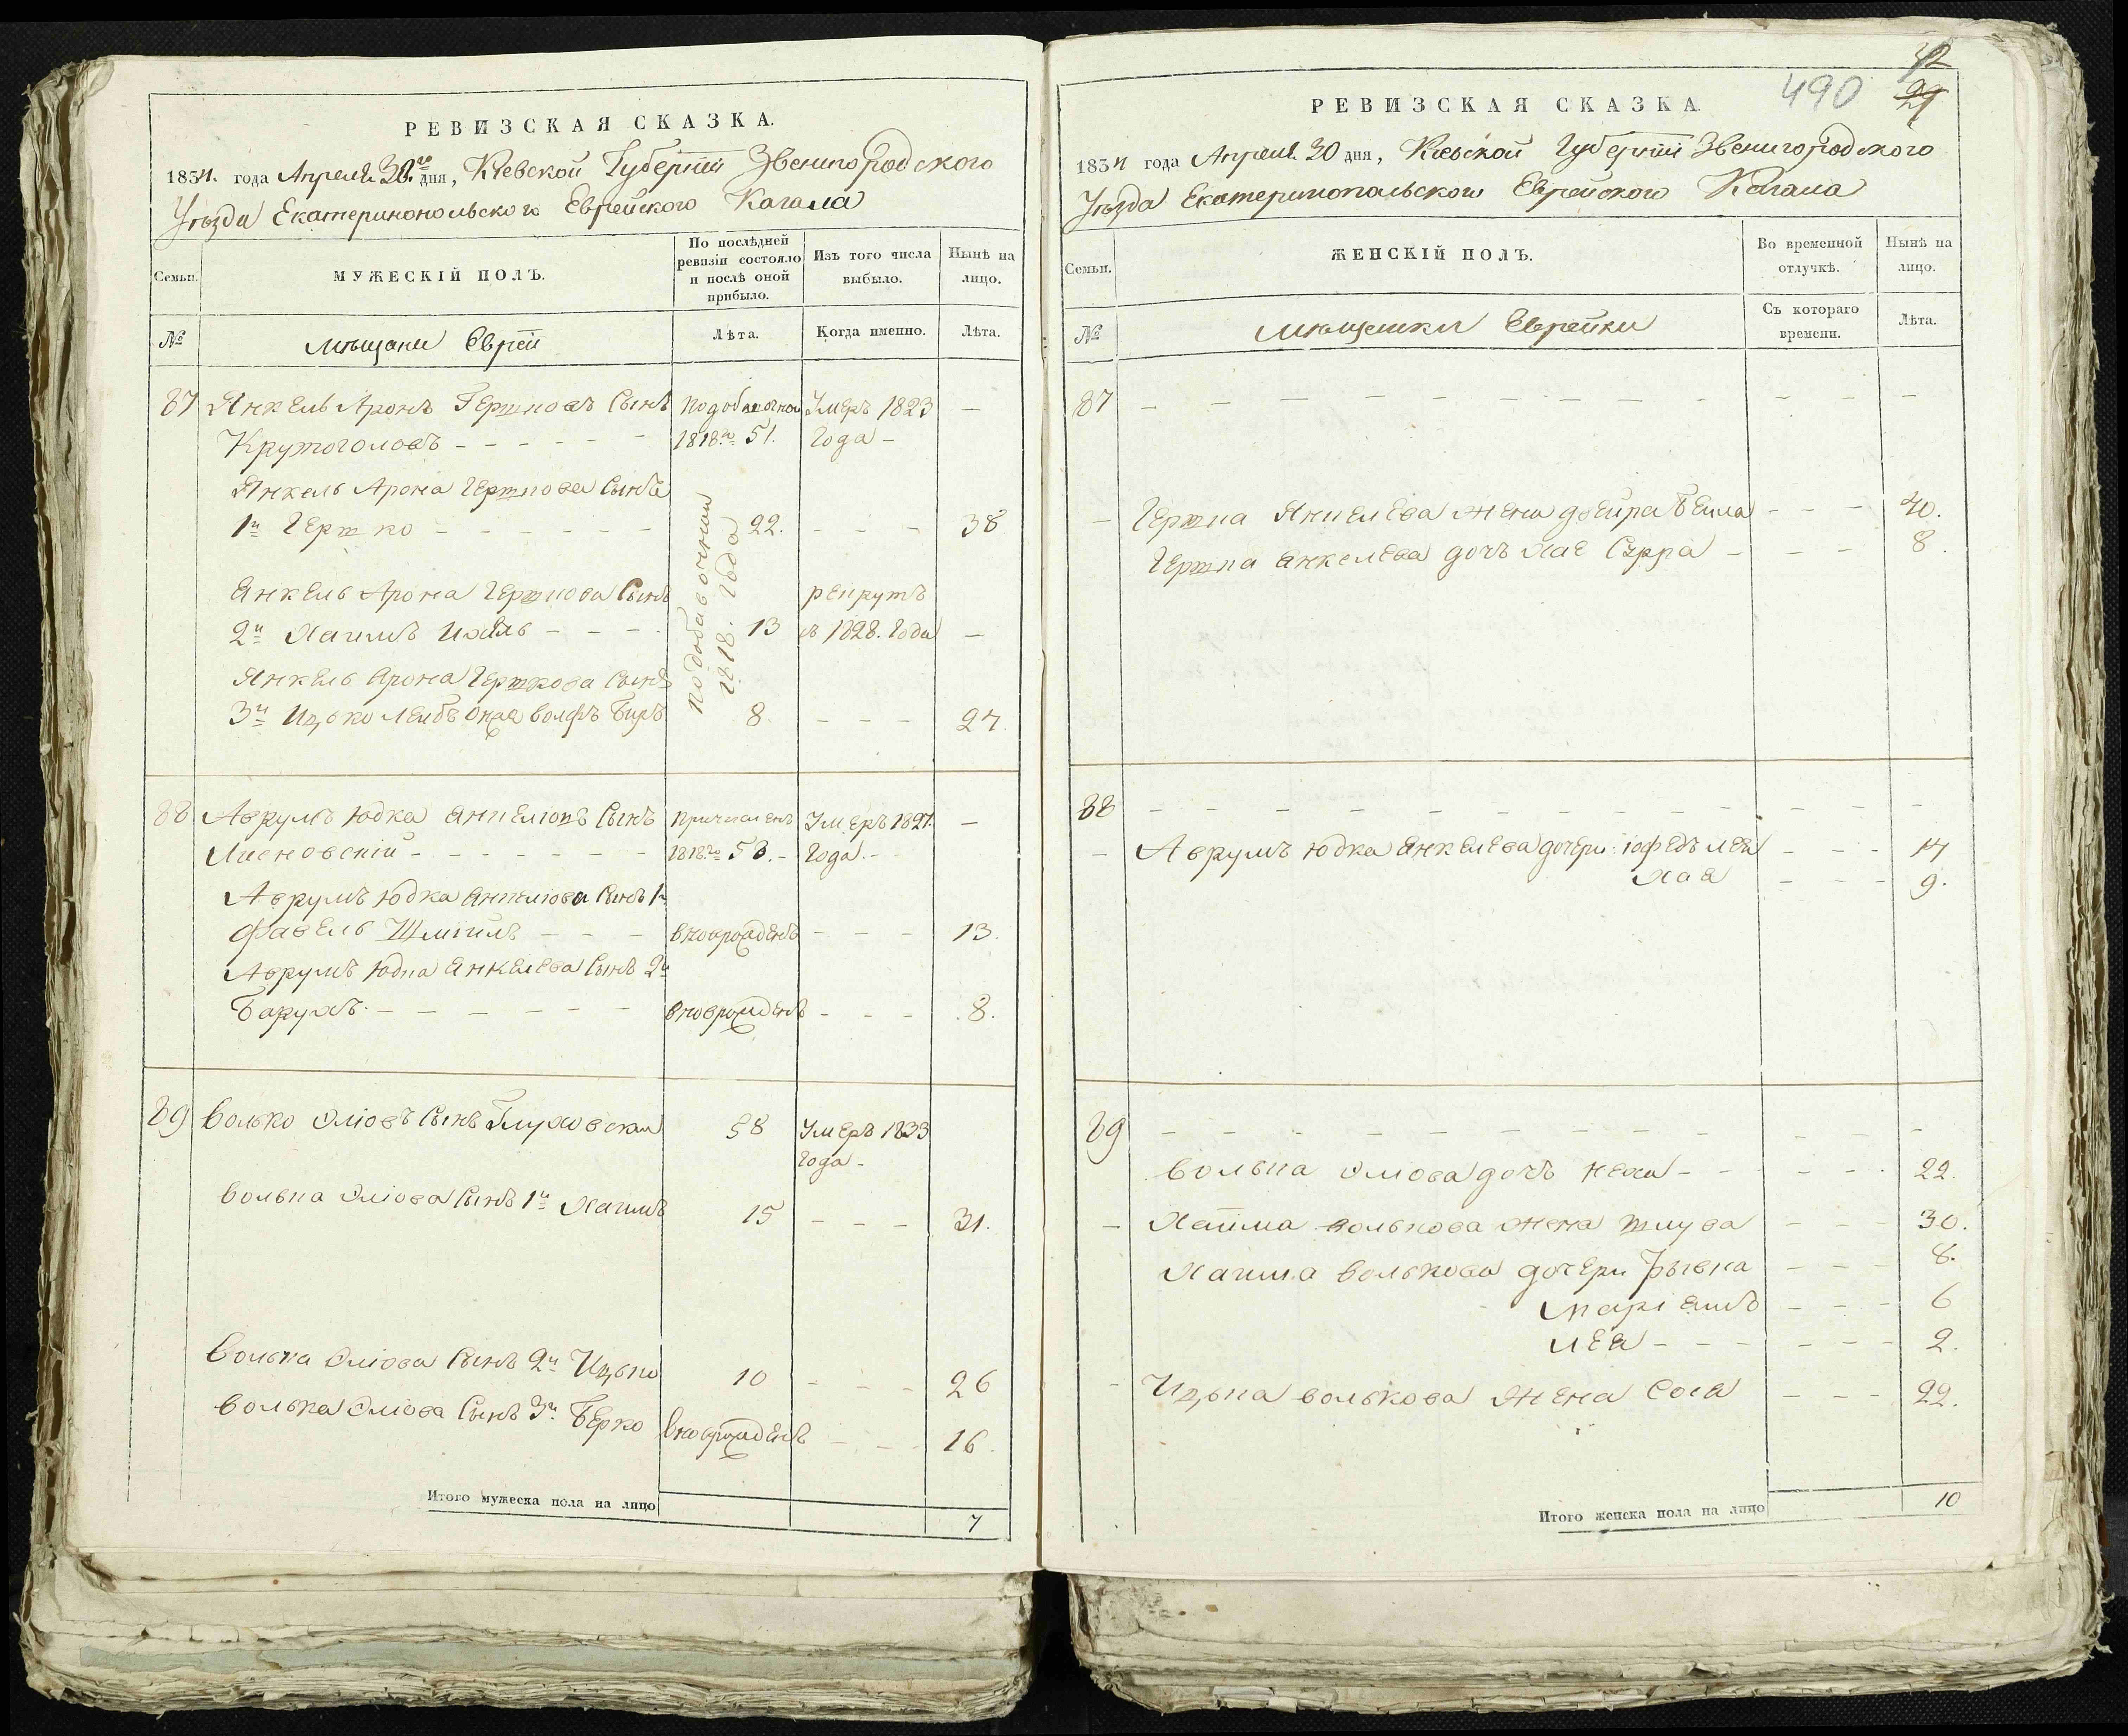 РЕВИЗСКАЯ СКАЗКА.
1834. года Апреля 30.го дня, Кіевской Губерніи Звенигородского
Уѣзда Екатеринопольского Еврейского Кагала
Семьи.
МУЖЕСКІЙ ПОЛЪ.
По послѣдней ревизіи состояло и послѣ оной прибыло.
Изъ того числа выбыло.
Нынѣ на лицо.
№
Мѣщане Евреи
Лѣта.
Когда именно.
Лѣта.
87 Янкель Аронъ Гершковъ Сынъ по добавочной Умеръ 1823 —
Крутоголовъ - - - - - - 1818.го 51. Года -
Янкель Арона Гершкова Сынъ
1й Гершко - - - - - - 22. - - - 38
по добавочной
1818. Года
Янкель Арона Гершкова Сынъ рекрутъ
2й Хаимъ - - - - 13 въ 1828. Года —
Янкель Арона Гершкова Сынъ
3й Ицько Лейбъ онъ же Волфъ Беръ 8. - - - 24.
88 Аврумъ Юдка Янкелювъ Сынъ причисленъ Умеръ 1827. —
Лисновскій - - - - - - - 1818.го 53. - Года. -
Аврумъ Юдка Янкелюва Сынъ 1й
Фавель Шміилъ - - - вноврожденъ - - - 13.
Аврумъ Юдка Янкелева Сынъ 2й
Барухъ. - - - - - - - вноврожденъ - - - 8.
89 Волько Эліовъ Сынъ Глуховскій 58 Умеръ 1833
Года -
Волька Эліова Сынъ 1й Хаимъ 15 - - - 31.
Волька Эліова Сынъ 2й Ицько 10 - - - 26
Волька Эліова Сынъ 3й Берко вноврожденъ - - - 16.
Итого мужеска пола на лицо 7
42
490 29
РЕВИЗСКАЯ СКАЗКА
1834 года Апреля 30 дня, Кіевской Губерніи Звенигородского
Уѣзда Екатеринопольского Еврейского Кагала
Семьи.
ЖЕНСКІЙ ПОЛЪ.
Во временной отлучкѣ.
Нынѣ на лицо.
№
Мѣщанки Еврейки
Съ котораго времени.
Лѣта.
87 - - - - - - - - - - - -
- Гершка Янкелева жена Двейра Бейла - - - 40.
Гершка Янкелева дочь Хае Сурра - - - 8.
88 - - - - - - - - - - - -
- Аврумъ Юдка Янкелева дочери: Іофедъ Лея - - - 14
Хая - - - 9.
89 - - - - - - - - - - - -
Волька Эліова дочь Неха - - - - - 22.
- Хаима Волькова жена Шлува - - - 30.
Хаима Волькова дочери Рывка - - - 8.
Маріемъ - - - 6
Лея - - - - - - 2.
- Ицька Волькова жена Сося - - - 22.
Итого женска пола на лицо 10